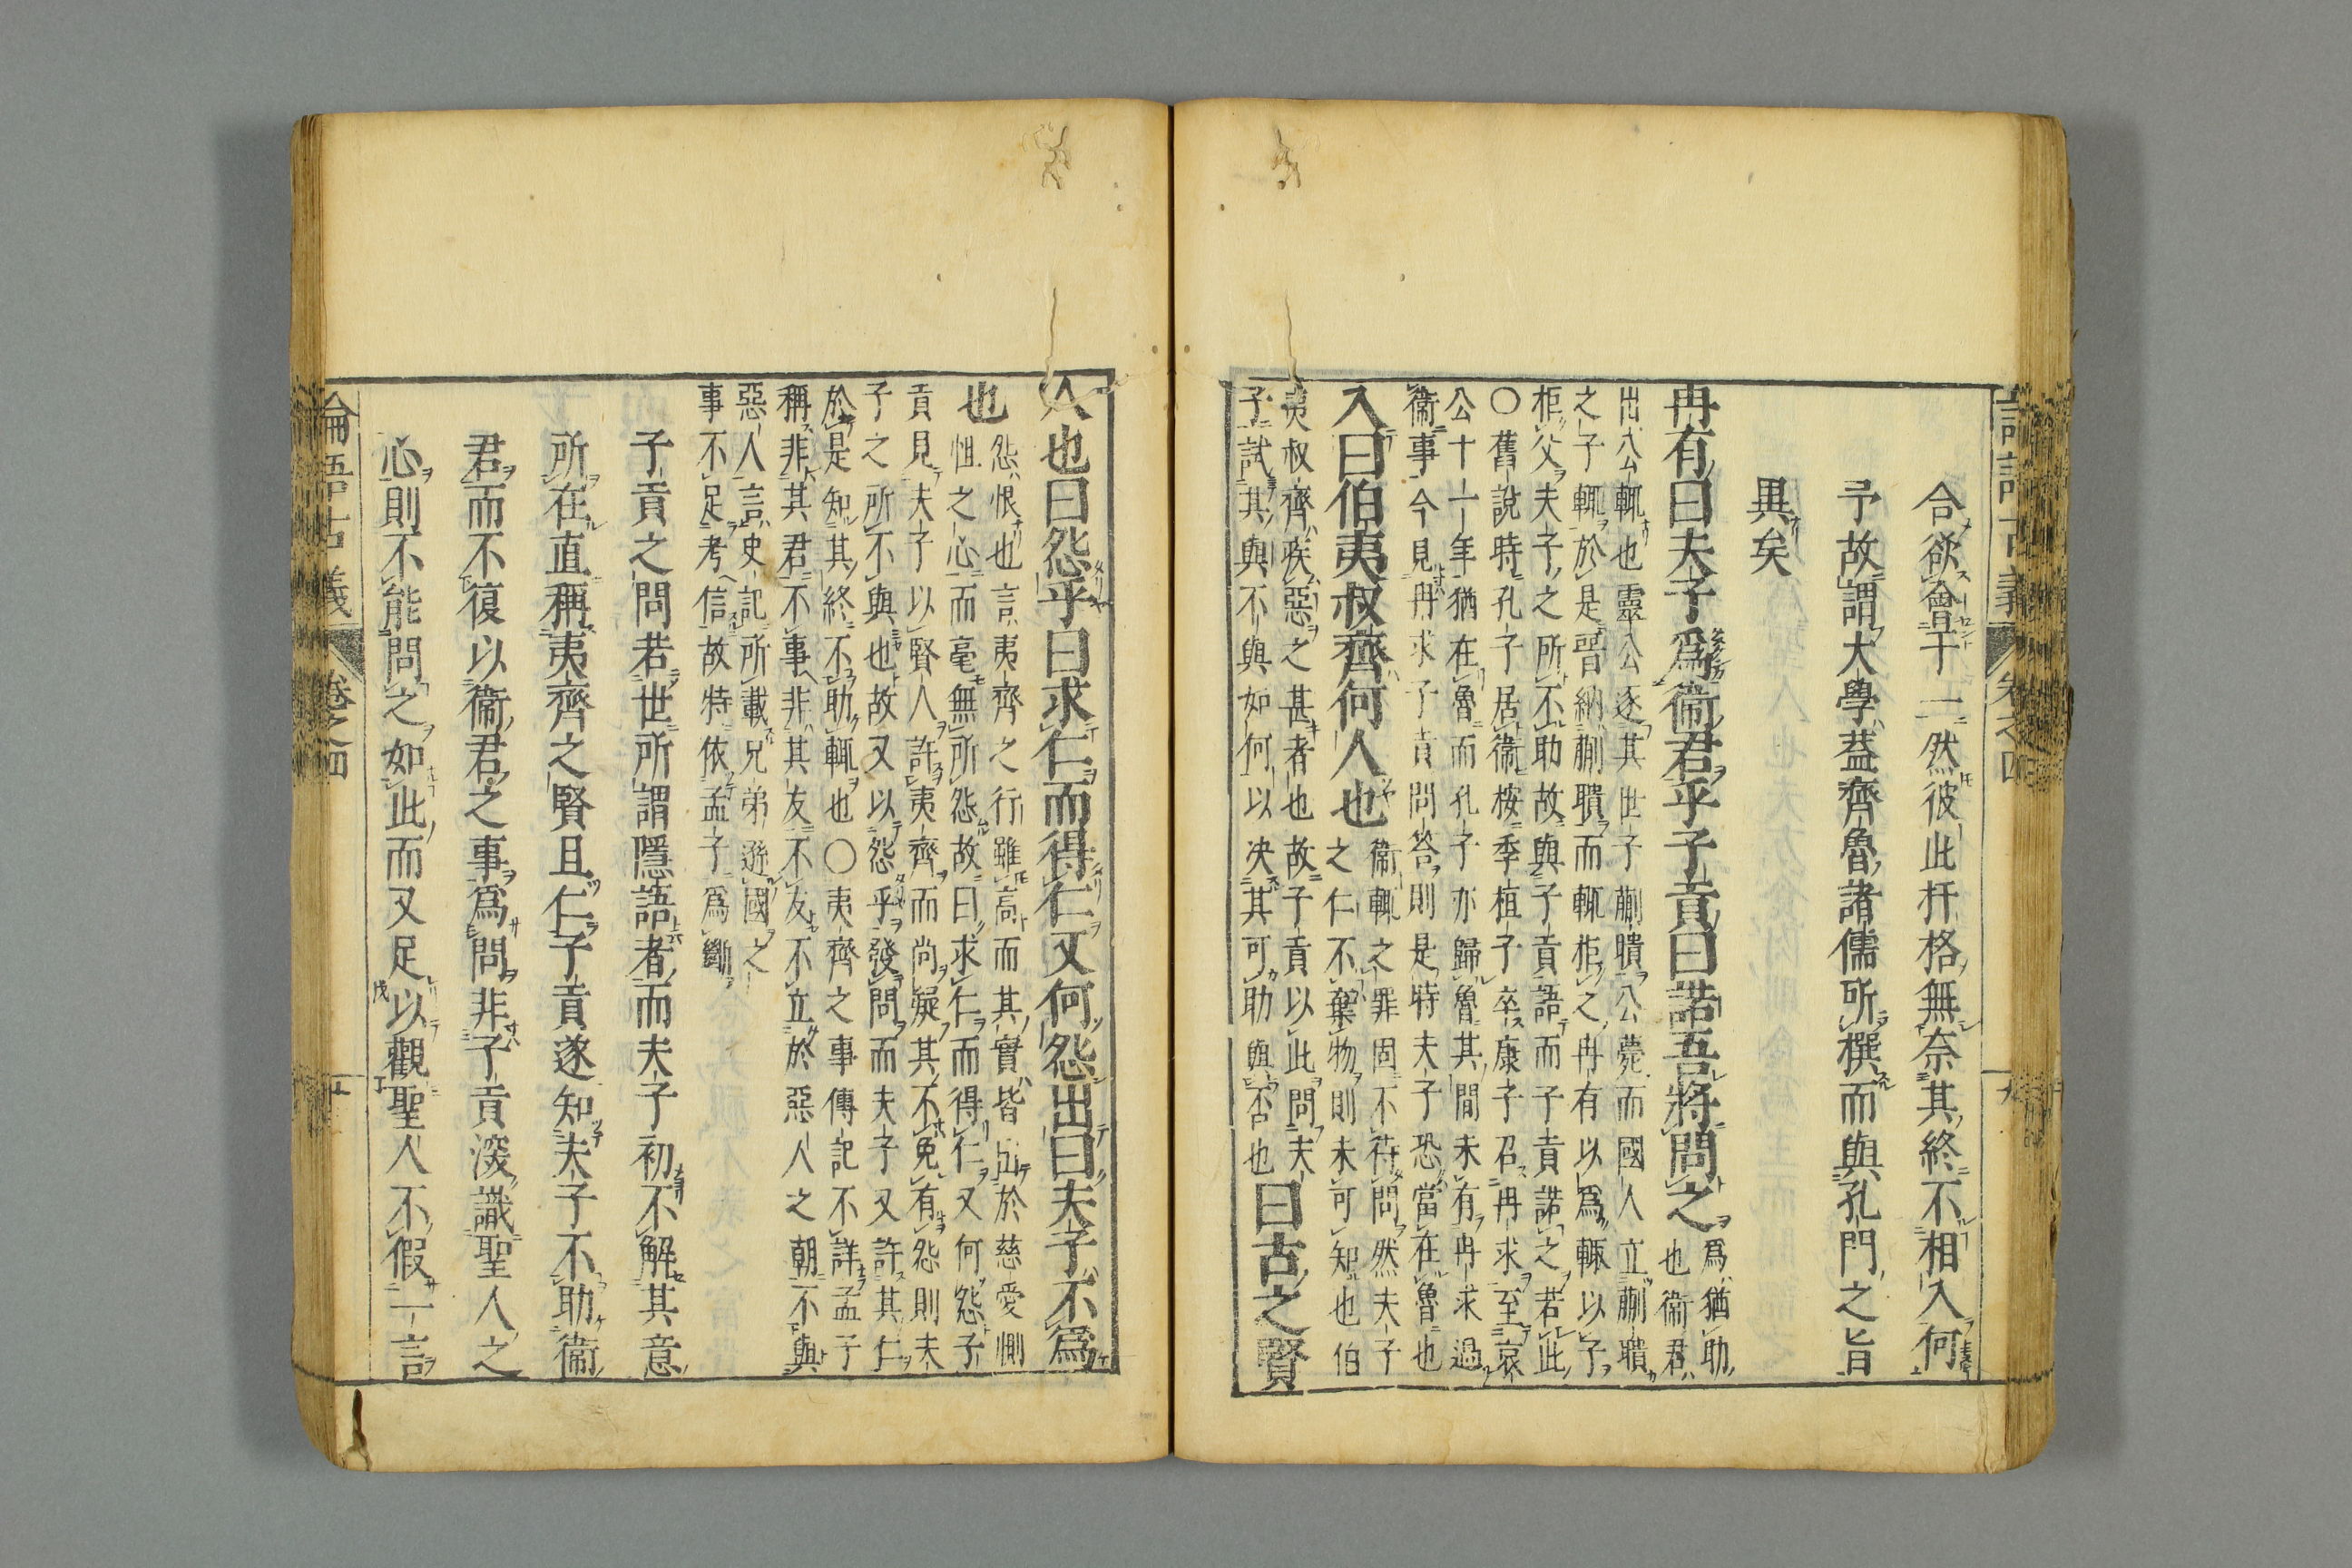 合欲會于一然彼此扞格無奈其終不相入何
予故謂大學葢齊魯諸儒所撰而與孔門之旨
異矣
冉有曰夫子爲衞君乎子貢曰諾吾將問之
爲猶助
也衞君
出公輒也靈公逐其世子蒯聵公薨而國人立蒯聵
之子輒於是晋納蒯聵而輒拒之冉有以爲輒以子
拒父夫子之所不助故與子貢語而子貢諾之若此
〇舊說時孔子居衞桉季桓子卒康子召冉求至哀
公十一年猶在魯而孔子亦歸魯其間未有冉求過
衞事今見冉求子貢問答則是特夫子恐當在魯也
入曰伯夷叔齊何人也
衞輒之罪固不待問然夫子
之仁不棄物則未可知也伯
夷叔齊疾惡之甚者也故子貢以此問夫
子試其與不與如何以决其可助與否也
曰古之賢
論語古義
卷之四
人也曰怨乎曰求仁而得仁又何怨出曰夫子不爲
也
怨恨也言夷齊之行雖高而其實皆出於慈愛惻
怛之心而毫無所怨故曰求仁而得仁又何怨子
貢見夫子以賢人許夷齊而尚疑其不免有怨則夫
子之所不與也故又以怨乎發問而夫子又許其仁
於是知其終不助輒也〇夷齊之事傳記不詳孟子
稱非其君不事非其友不友不立於惡人之朝不與
惡人言史記所載兄弟遜國之
事不足考信故特依孟子爲斷
子貢之問若世所謂隱語者而夫子初不解其意
所在直稱夷齊之賢且仁子貢遂知夫子不助衞
君而不復以衞君之事爲問非子貢深識聖人之
心則不能問之如此而又足以觀聖人不假一言
論語古義
卷之四